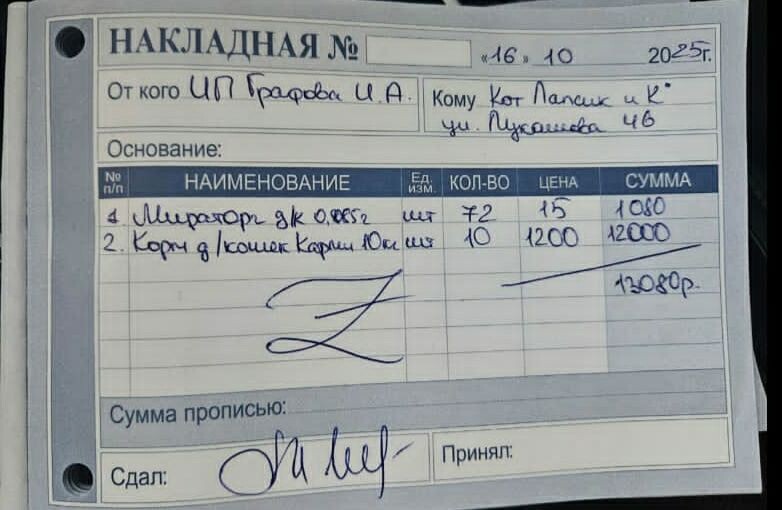 НАКЛАДНАЯ №
«16» 10 2025г.
От кого ИП Графова И.А.
Кому Кот Лапсик и К°
ул. Лукашова 4б
Основание:
№ п/п НАИМЕНОВАНИЕ Ед. изм. КОЛ-ВО ЦЕНА СУММА
1 Мираторг д/к 0,085г шт 72 15 1080
2. Корм д/кошек Карми 10кг шт 10 1200 12000
13080р.
Сумма прописью:
Сдал:
Принял: